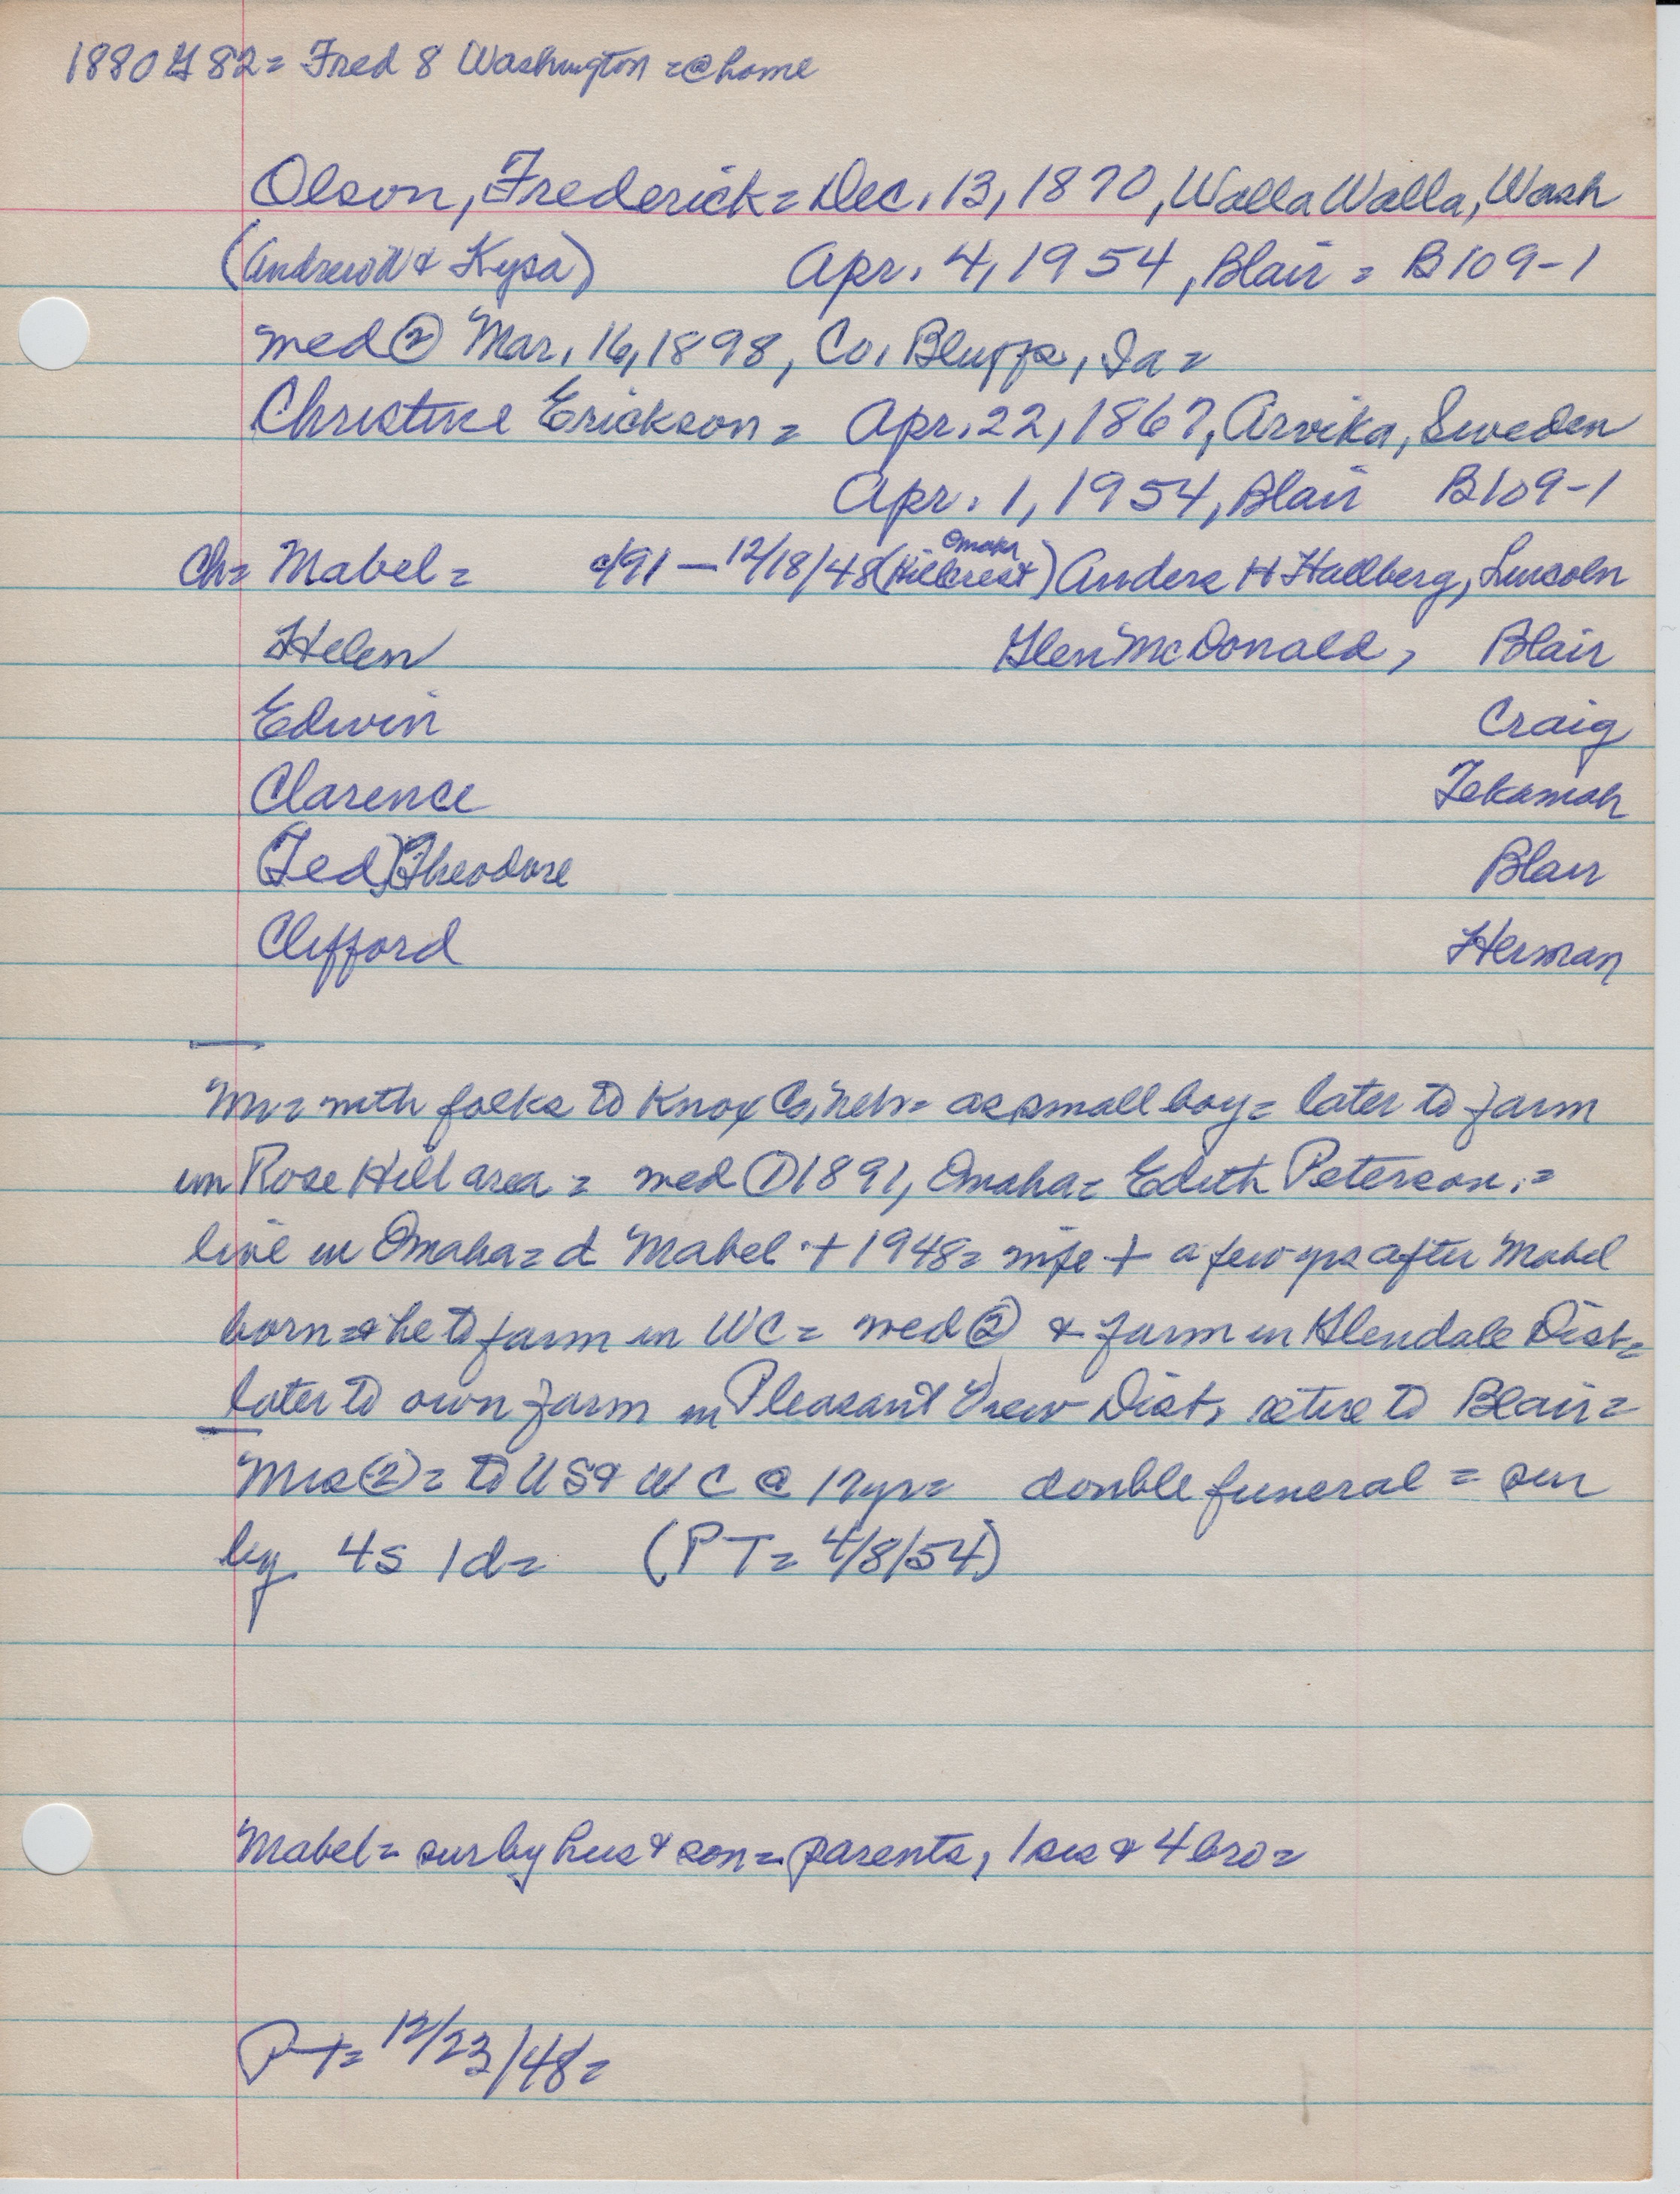 1880 G 82= Fred 8 Washington =@home
Olson, Frederick= Dec. 13, 1870, Walla Walla, Wash
(Andrew & Kysa) Apr. 4, 1954, Blair = B109-1
med ② Mar. 16, 1898, Co. Bluffs, Ia=
Christine Erickson= Apr. 22, 1867, Arvika, Sweden
Apr. 1, 1954, Blair B109-1
Ch= Mabel= 91 — 12/18/48 (Omaha Hillcrest) Anders H Hallberg, Lincoln
Helen Glen McDonald, Blair
Edwin Craig
Clarence Tekamah
(Ted) Theodore Blair
Clifford Herman
Mr= with folks to Knox Co, Neb= as small boy= later to farm
in Rose Hill area = med ① 1891, Omaha= Edith Peterson.=
live in Omaha= d Mabel + 1948= wife + a few yrs after Mabel
born= & he to farm in WC= med ② & farm in Glendale Dist=
later to own farm in Pleasant View Dist, retire to Blair=
Mrs ②= to US & WC @ 17yr= double funeral = sur
by 4s 1d= (PT= 4/8/54)
Mabel= sur by hus & son= parents, 1 sis & 4 bro=
PT= 12/23/48=